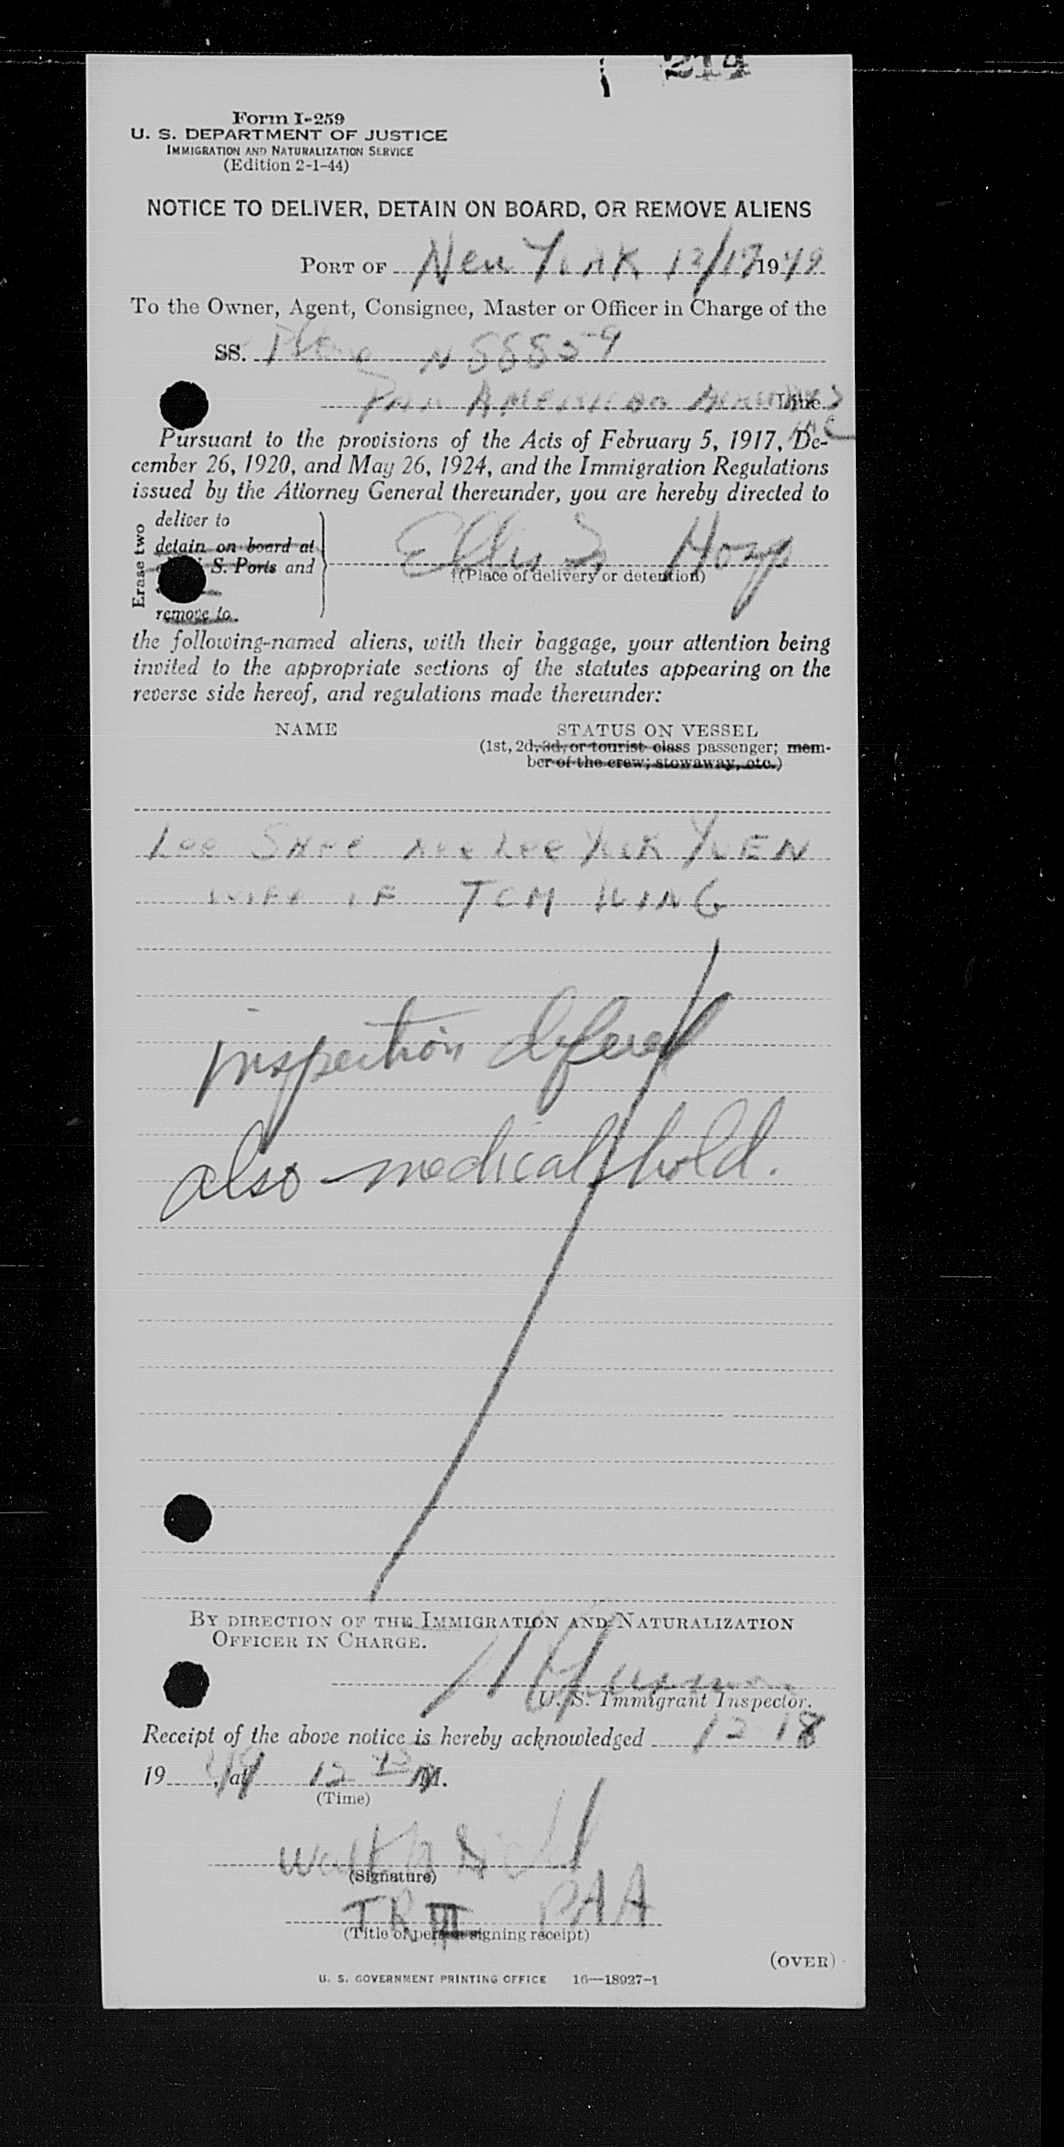 214
Form I-259
U. S. DEPARTMENT OF JUSTICE
IMMIGRATION AND NATURALIZATION SERVICE
(Edition 2-1-44)
NOTICE TO DELIVER, DETAIN ON BOARD, OR REMOVE ALIENS
PORT OF New York 12/17 1949
To the Owner, Agent, Consignee, Master or Officer in Charge of the
SS. Plane N 88859
Pan American Airways Line
INC
Pursuant to the provisions of the Acts of February 5, 1917, De-
cember 26, 1920, and May 26, 1924, and the Immigration Regulations
issued by the Attorney General thereunder, you are hereby directed to
Erase two
deliver to
detain on board at
S. Ports and
remove to
Ellis Is Hosp
(Place of delivery or detention)
the following-named aliens, with their baggage, your attention being
invited to the appropriate sections of the statutes appearing on the
reverse side hereof, and regulations made thereunder:
NAME STATUS ON VESSEL
(1st, 2d, 3d, or tourist class passenger; mem-
ber of the crew; stowaway, etc.)
Lee Shee nee Lee Yuk YUEN
WIFE OF TOM WING
inspection deferred
also medical hold.
BY DIRECTION OF THE IMMIGRATION AND NATURALIZATION
OFFICER IN CHARGE.
U. S. Immigrant Inspector.
Receipt of the above notice is hereby acknowledged 12 18
19 49, at 12 M.
(Time)
(Signature)
TR III PAA
(Title of person signing receipt)
(OVER)
U. S. GOVERNMENT PRINTING OFFICE 16—18927-1